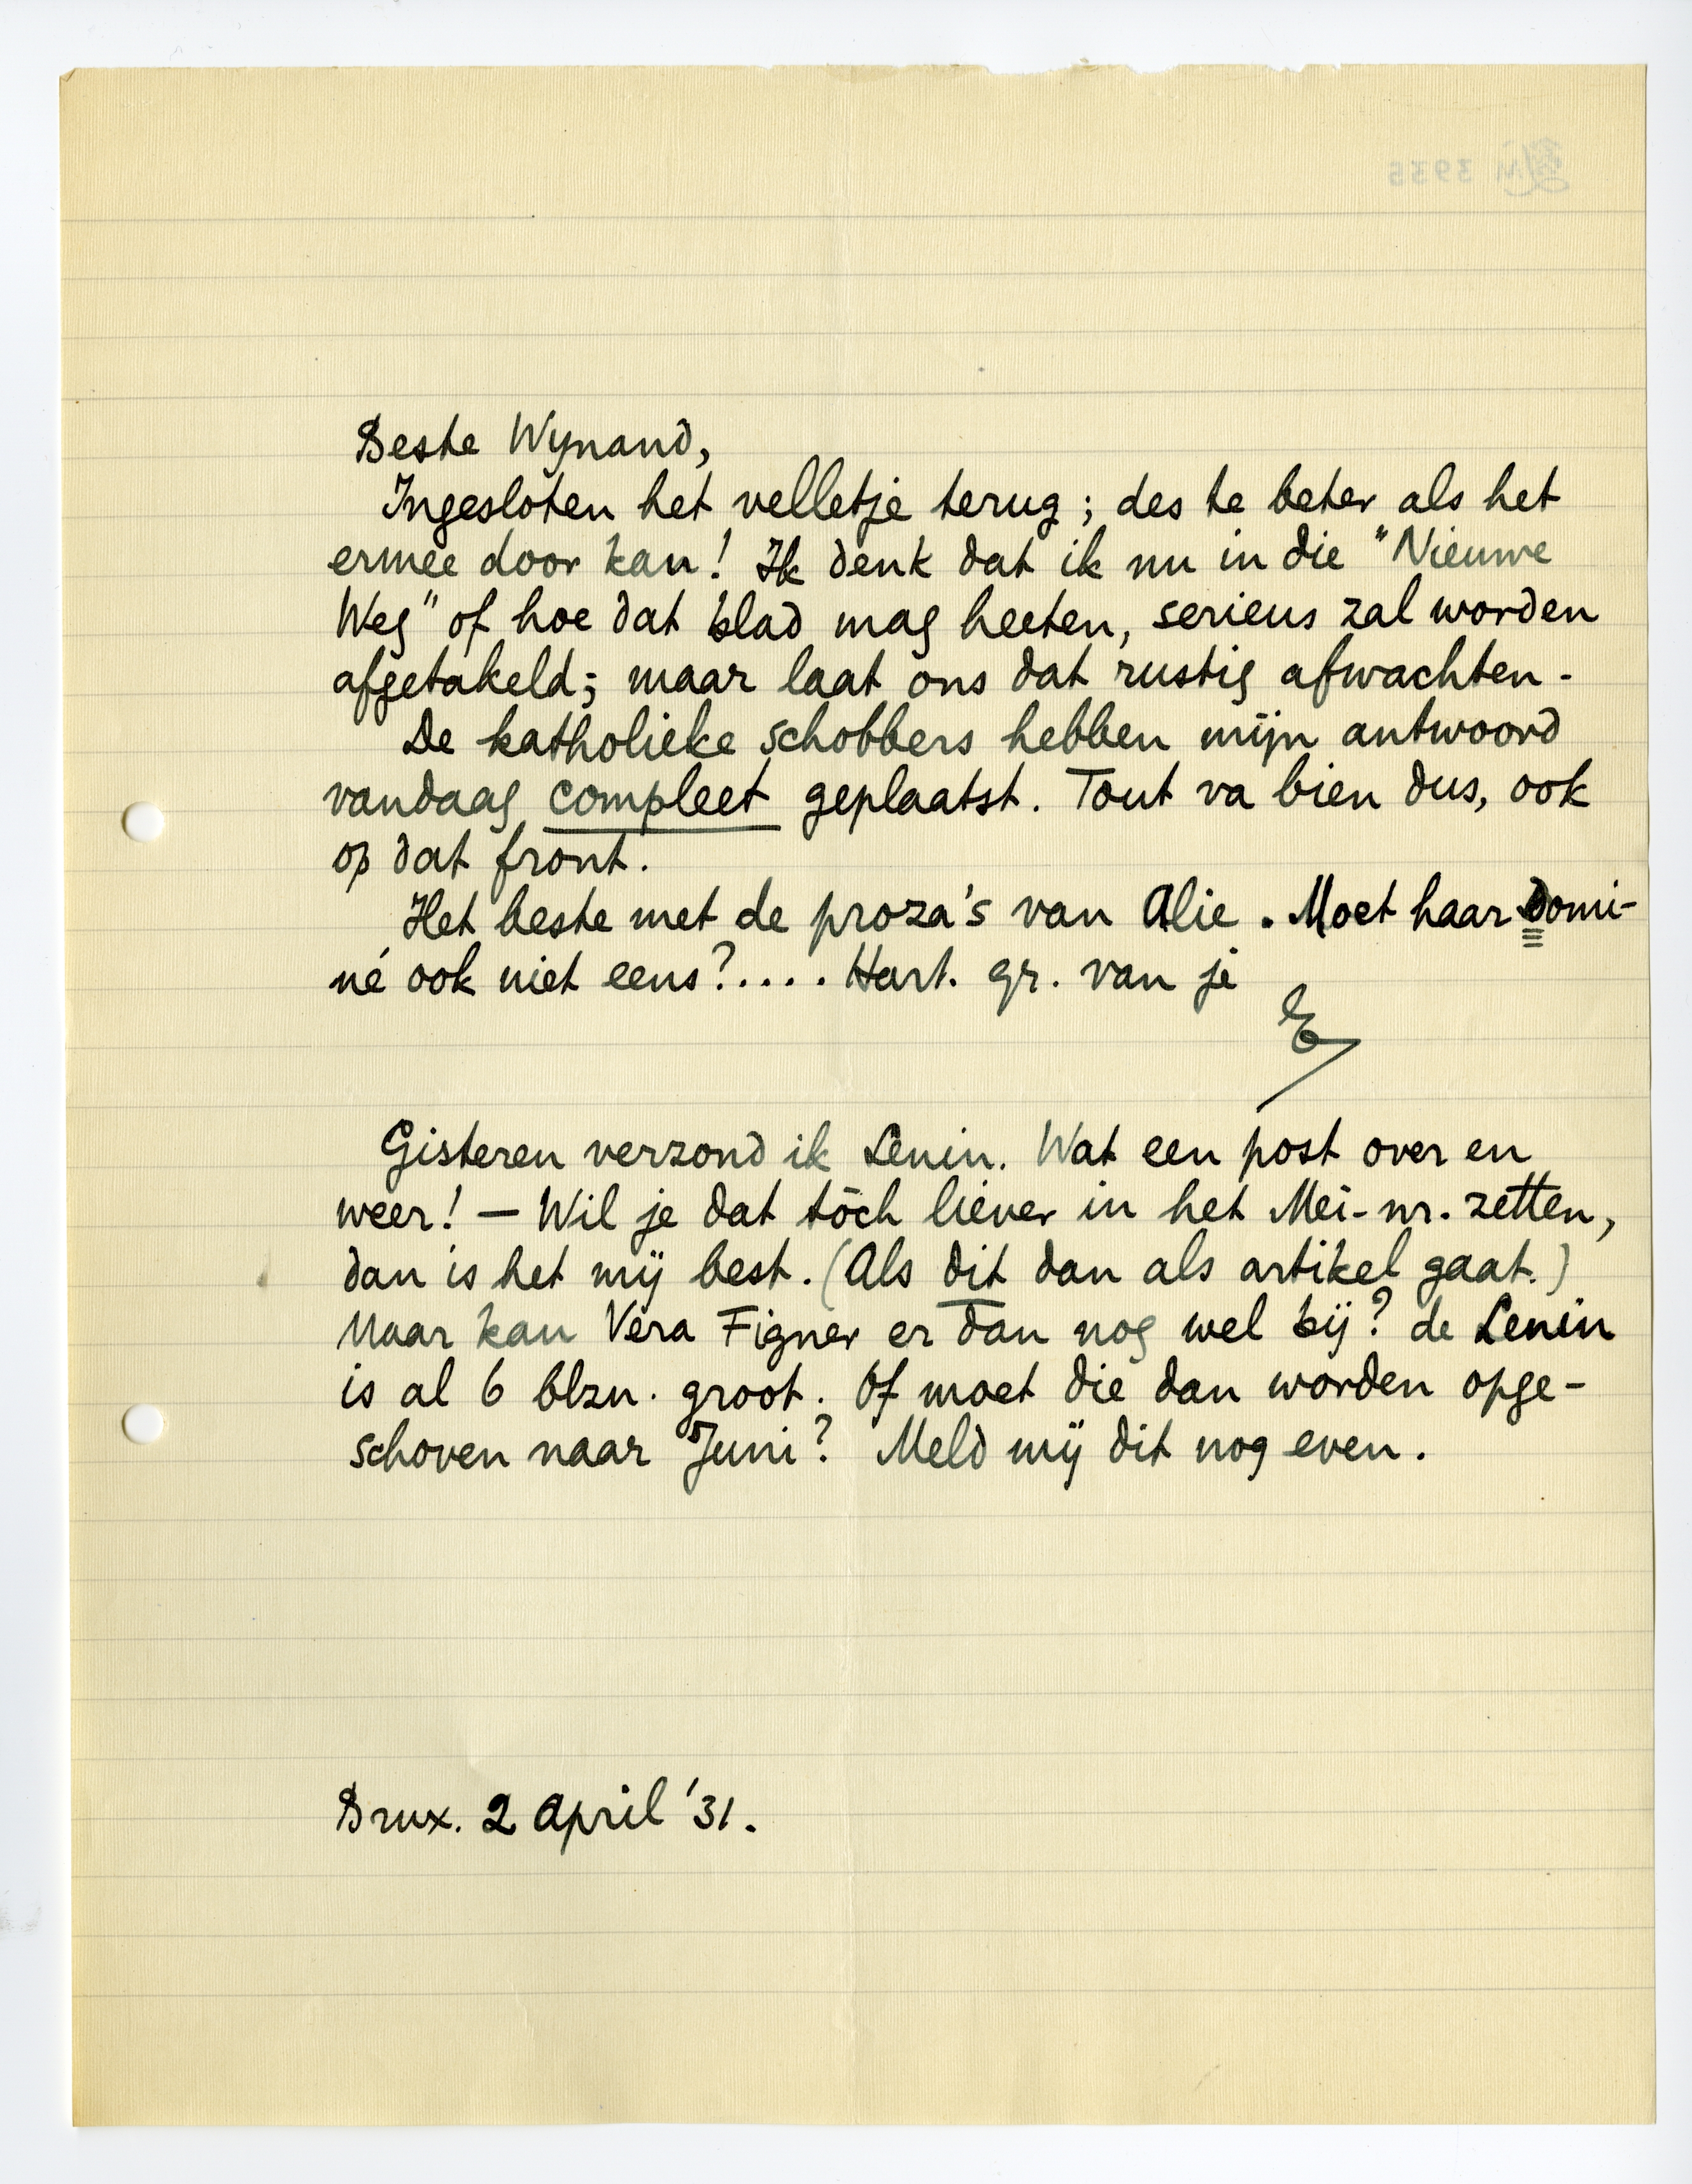 Beste Wynand,
Ingesloten het velletje terug; des te beter als het
ermee door kan! Ik denk dat ik nu in die "Nieuwe
Weg" of hoe dat blad mag heeten, serieus zal worden
afgetakeld; maar laat ons dat rustig afwachten.
De katholieke schobbers hebben mijn antwoord
vandaag compleet geplaatst. Tout va bien dus, ook
op dat front.
Het beste met de proza's van Alie. Moet haar Domi-
né ook niet eens?.... Hart. gr. van je
E
Gisteren verzond ik Lenin. Wat een post over en
weer! — Wil je dat tòch liever in het Mei-nr. zetten,
dan is het mij best. (Als dit dan als artikel gaat.)
Maar kan Vera Figner er dan nog wel bij? de Lenin
is al 6 blzn. groot. Of moet die dan worden opge-
schoven naar Juni? Meld mij dit nog even.
Brux. 2 April '31.